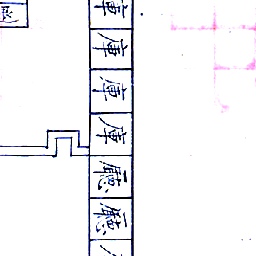 庫
庫
庫
庫
廳
廳